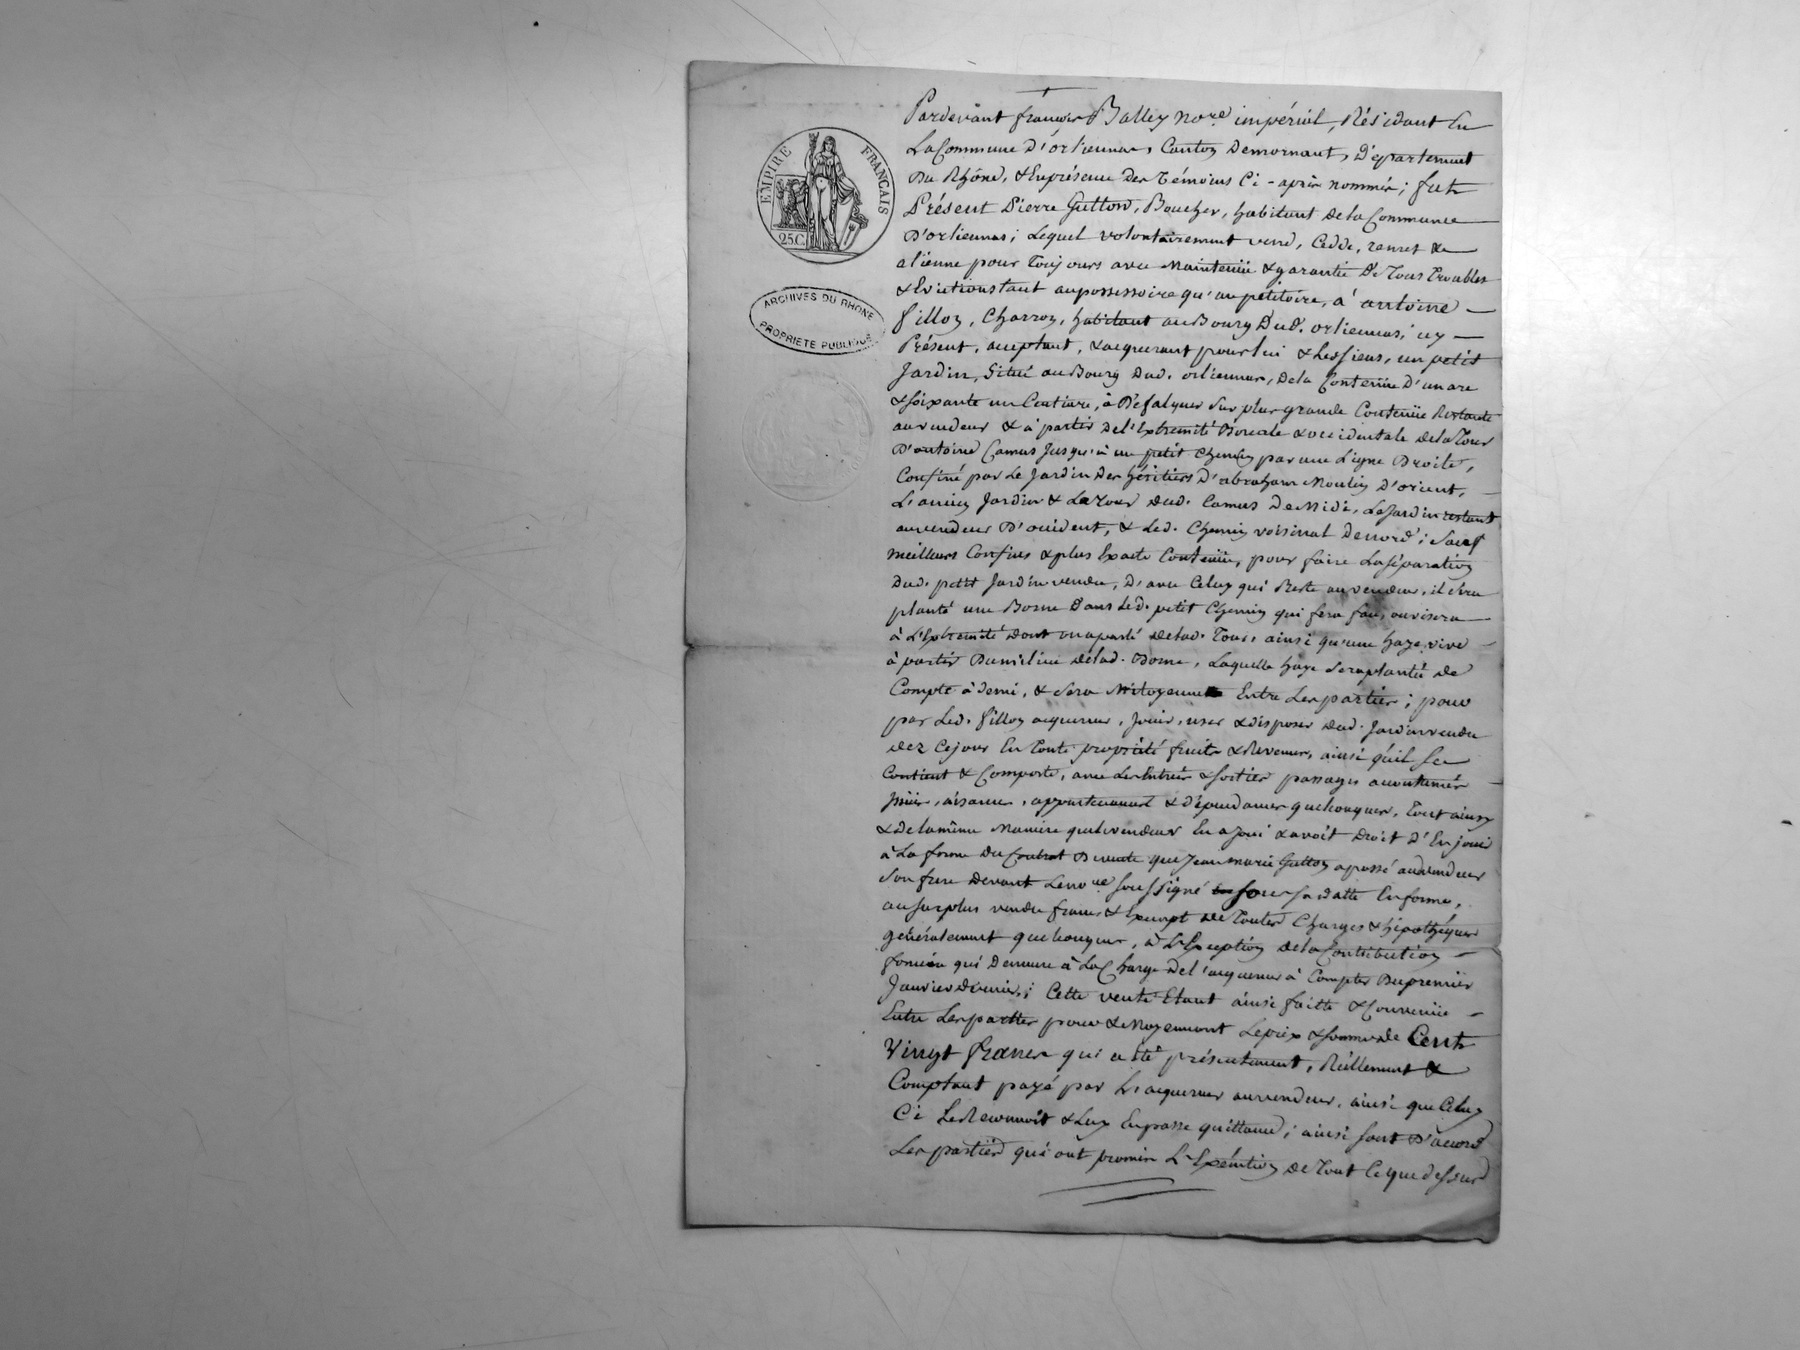 EMPIRE FRANCAIS
25C.
ARCHIVES DU RHONE
PROPRIETE PUBLIQUE
Pardevant françois Balley no.re impérial, Résidant En
La Commune D'orliennas, Canton Demornant, D'épartement
Du Rhône, & Enprésence Des Témoins Ci-après nommés; fut
Présent Pierre Gutton, Boucher, habitant Dela Commune
D'orliennas; Lequel volontairement vend, Cedde, remet &
aliénne pour Toujours avec Maintenüe & garantie De Tous Troubles
& Evictions tant aupossessoire qu'au pétitoire, à antoine
fillon, Charron, habitant au Bourg Dud. orliennas, icy
Présent, aceptant, & aqueurant pour lui & Les siens, un petit
Jardin, Situé au Bourg Dud. orliennas, Dela Contenüe D'un are
& soixante un Centiare, à Défalquer Sur plus grande Contenüe Restante
auvendeur & à partir De l'Extremité Boreale & occidentale Dela Tour
D'antoine Camus Jusqu'à un petit Chemin par une Ligne Droite,
Confiné par Le Jardin Des héritiers D'abraham Moulin D'orient,
L'ancien Jardin & La Tour Dud. Camus De Midi, Le Jardin restant
auvendeur D'occident, & Led. Chemin voisinal De nord; Sauf
meilleurs Confins & plus Exacte Contenüe, pour faire La Séparation
Dud. petit Jardin vendu, D'avec Celuy qui Reste auvendeur, il Sera
planté une Borne Dans Led. petit Chemin qui fera face, ou visera
à L'Extremité Dont on a parlé Delad. Tour, ainsi qu'une haye vive
à partir Dumilieu Delad. Borne, Laquelle haye Sera plantée de
Compte à demi, & Sera Mitoyenne Entre Les parties; pour
par Led. fillon aquereur, Jouir, user & disposer Dud. Jardin vendu
Dez Cejour En Toute propriété fruits & Revenus, ainsi qu'il Se
Contient & Comporte, avec Les Entrées & Sorties passages acoutumés
Jssües, aisances, appartenances & dépendances quelconques, Tout ainsy
& De la même Maniere que Le vendeur En a Joui & avoit Droit D'En jouir
à La forme Du Contrat De vente que Jean marie Gutton a passé auvendeur
Son frere Devant Leno.re soussigné sous Sa datte En forme,
au Surplus vendu franc & Exempt de Toutes Charges & hipothéques
généralement quelconques, à L'Exception de la Contribution
fonciere qui Demeure à La Charge De l'aquereur à Compter Dupremier
Janvier dernier; Cette vente Etant ainsi faitte & Convenüe
Entre Les parties pour & Moyennant Le prix & Somme de Cent
Vingt francs qui a été présentement, Réellement &
Comptant payé par L'aquereur auvendeur, ainsi que Celuy
Ci Le Reconnoit & Luy En passe quittance; ainsi Sont D'acord
Les parties qui ont promis L'Exécution De Tout Ceque dessus